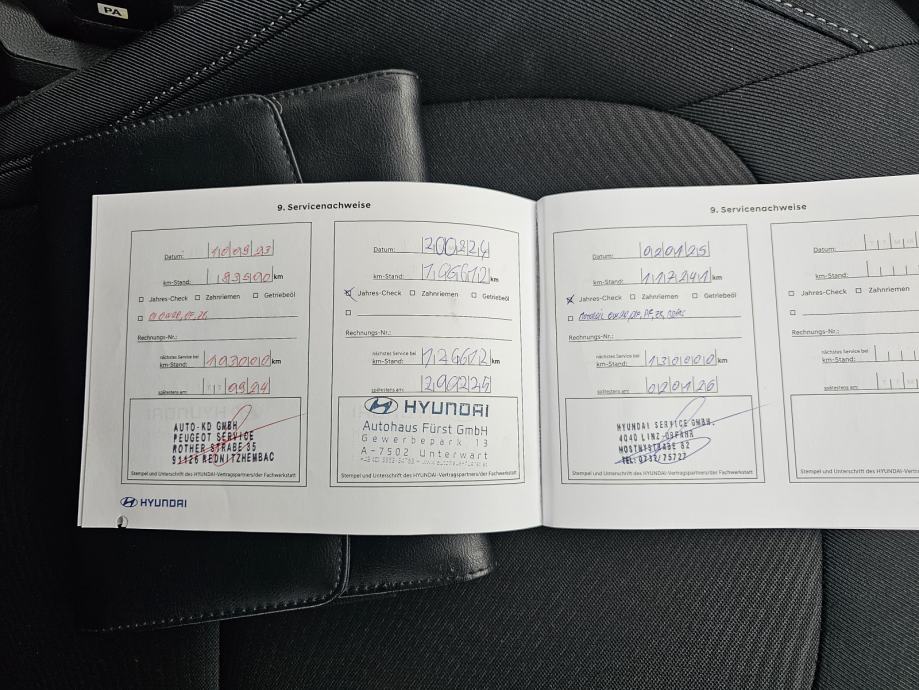 PA
9. Servicenachweise
Datum:
km-Stand: km
Jahres-Check Zahnriemen Getriebeöl
Rechnungs-Nr.:
nächstes Service bei
km-Stand: 193000 km
spätestens am: 09 24
AUTO-KD GMBH
PEUGEOT SERVICE
ROTHER STRAßE 35
91126 REDNITZHEMBAC
Stempel und Unterschrift des HYUNDAI-Vertragspartners/der Fachwerkstatt
HYUNDAI
Datum: 200224
km-Stand: km
Jahres-Check Zahnriemen Getriebeöl
Rechnungs-Nr.:
nächstes Service bei
km-Stand: 126612 km
spätestens am: 200225
HYUNDAI
Autohaus Fürst GmbH
Gewerbepark 13
A-7502 Unterwart
Stempel und Unterschrift des HYUNDAI-Vertragspartners/der Fachwerkstatt
9. Servicenachweise
Datum: 020125
km-Stand: 117241 km
Jahres-Check Zahnriemen Getriebeöl
Rechnungs-Nr.:
nächstes Service bei
km-Stand: 130000 km
spätestens am: 020126
HYUNDAI SERVICE GMBH.
4040 LINZ-URFAHR
TEL: 0732/75727
Stempel und Unterschrift des HYUNDAI-Vertragspartners/der Fachwerkstatt
Datum:
km-Stand:
Jahres-Check Zahnriemen
Rechnungs-Nr.:
nächstes Service bei
km-Stand:
spätestens am:
Stempel und Unterschrift des HYUNDAI-Vertrags